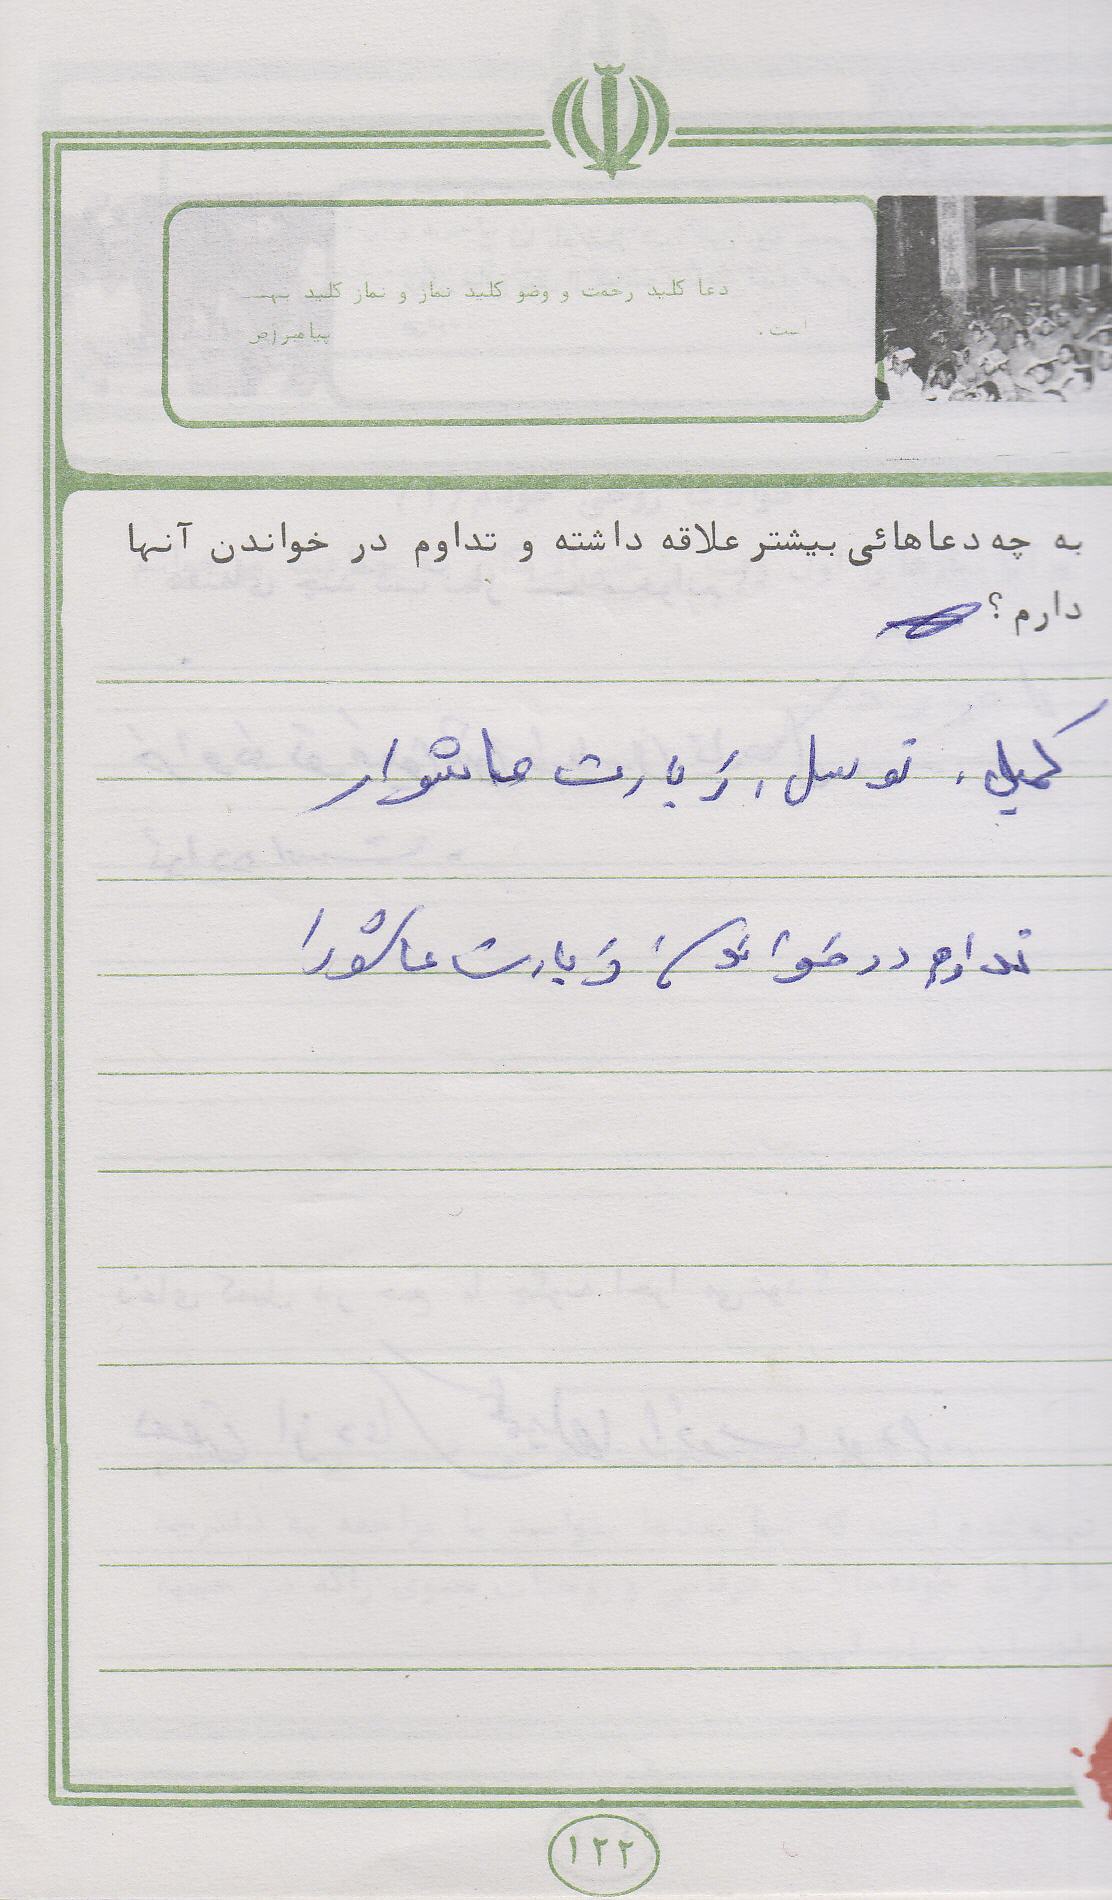 دعا کلید رحمت و وضو کلید نماز و نماز کلید بهـ
است . پیامبر (ص
به چه دعاهائی بیشتر علاقه داشته و تداوم در خواندن آنها
دارم ؟
کمیل ، توسل ، زیارت عاشورا
ندارم در خواندن زیارت عاشورا
۱۲۲